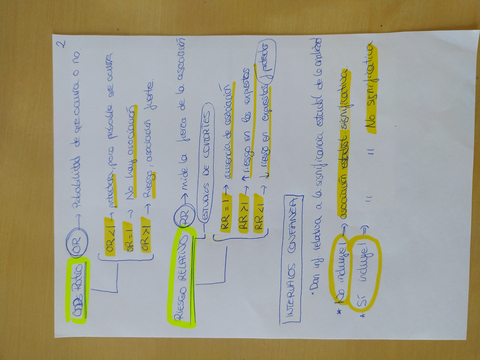 2
ODDS RATIO (OR) → Probabilidad de que ocurra o no
OR<1 → protector, poco probable que ocurra
OR=1 → No hay asociación
OR>1 → Riesgo, asociación fuerte
RIESGO RELATIVO (RR) → mide la fuerza de la asociación
→ ESTUDIOS DE COHORTES
RR=1 → ausencia de asociación
RR>1 → ↑ riesgo en los expuestos
RR<1 → ↓ riesgo en expuestos
INTERVALOS CONFIANZA
· Dan inf relativa a la significancia estadíst de la
* No incluye 1 → asociación estadíst significativa
* Sí incluye 1 → " " No significativa